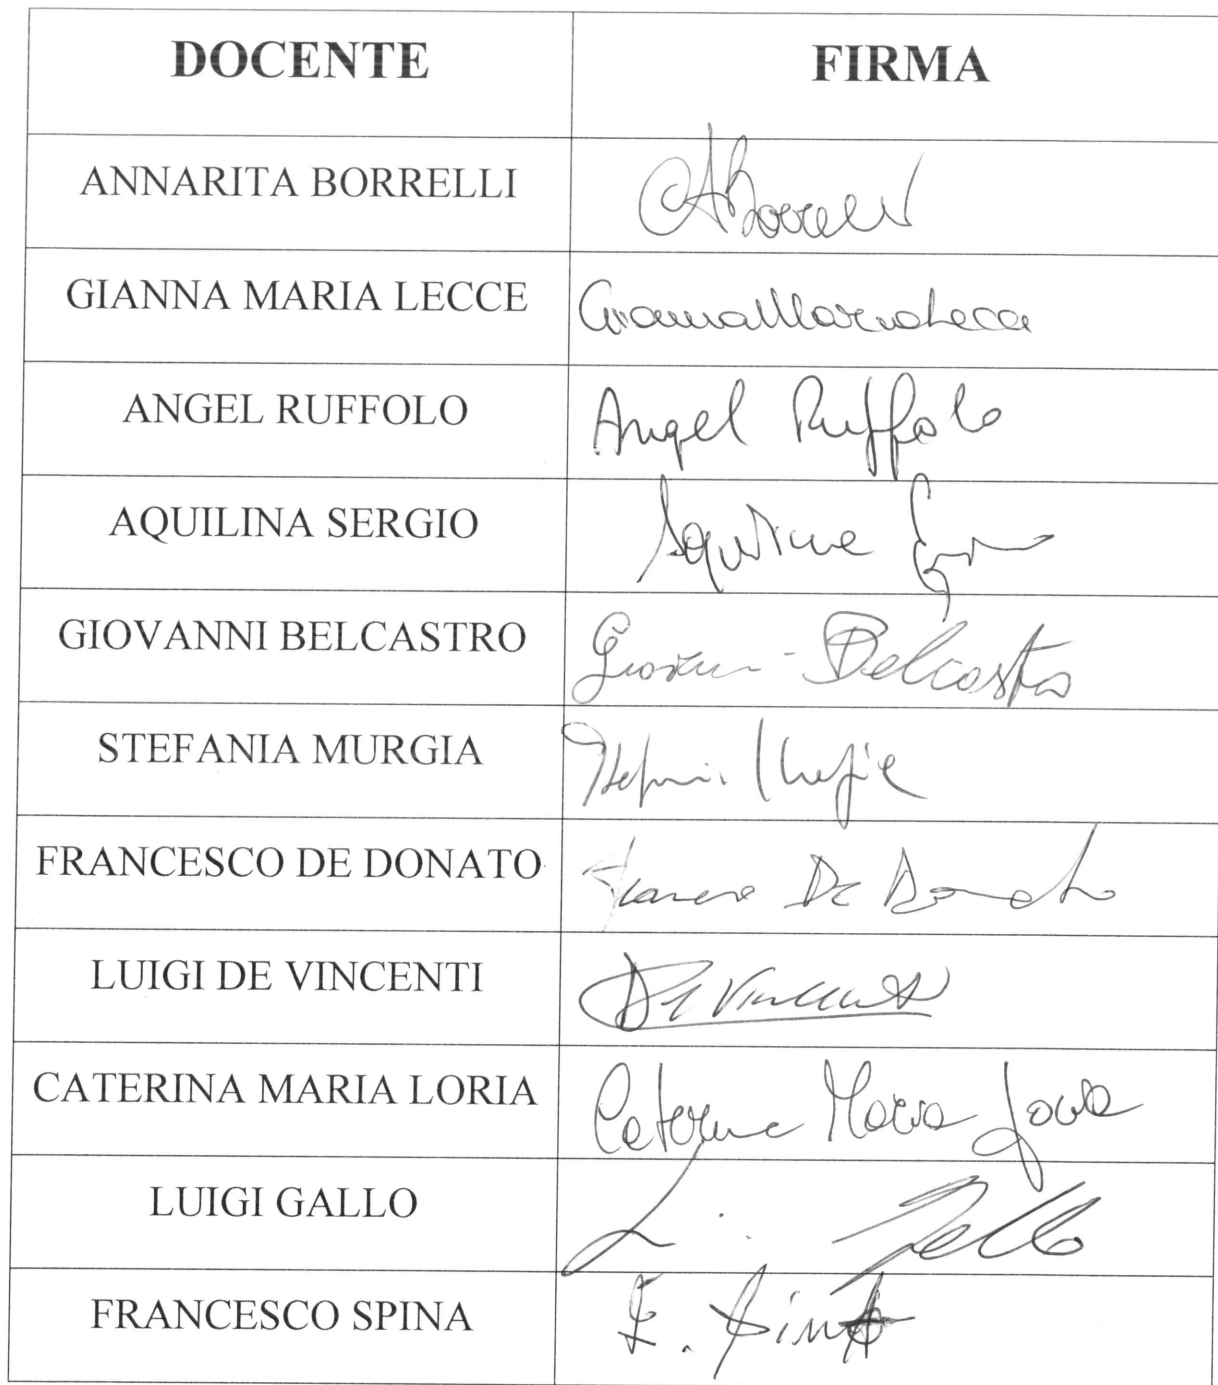 DOCENTE FIRMA
ANNARITA BORRELLI ABorrelli
GIANNA MARIA LECCE Gianna Maria Lecce
ANGEL RUFFOLO Angel Ruffolo
AQUILINA SERGIO Aquilina
GIOVANNI BELCASTRO Giovanni Belcastro
STEFANIA MURGIA Stefania Murgia
FRANCESCO DE DONATO Francesco De Donato
LUIGI DE VINCENTI De Vincenti
CATERINA MARIA LORIA Caterina Maria Loria
LUIGI GALLO L. Gallo
FRANCESCO SPINA F. Spina